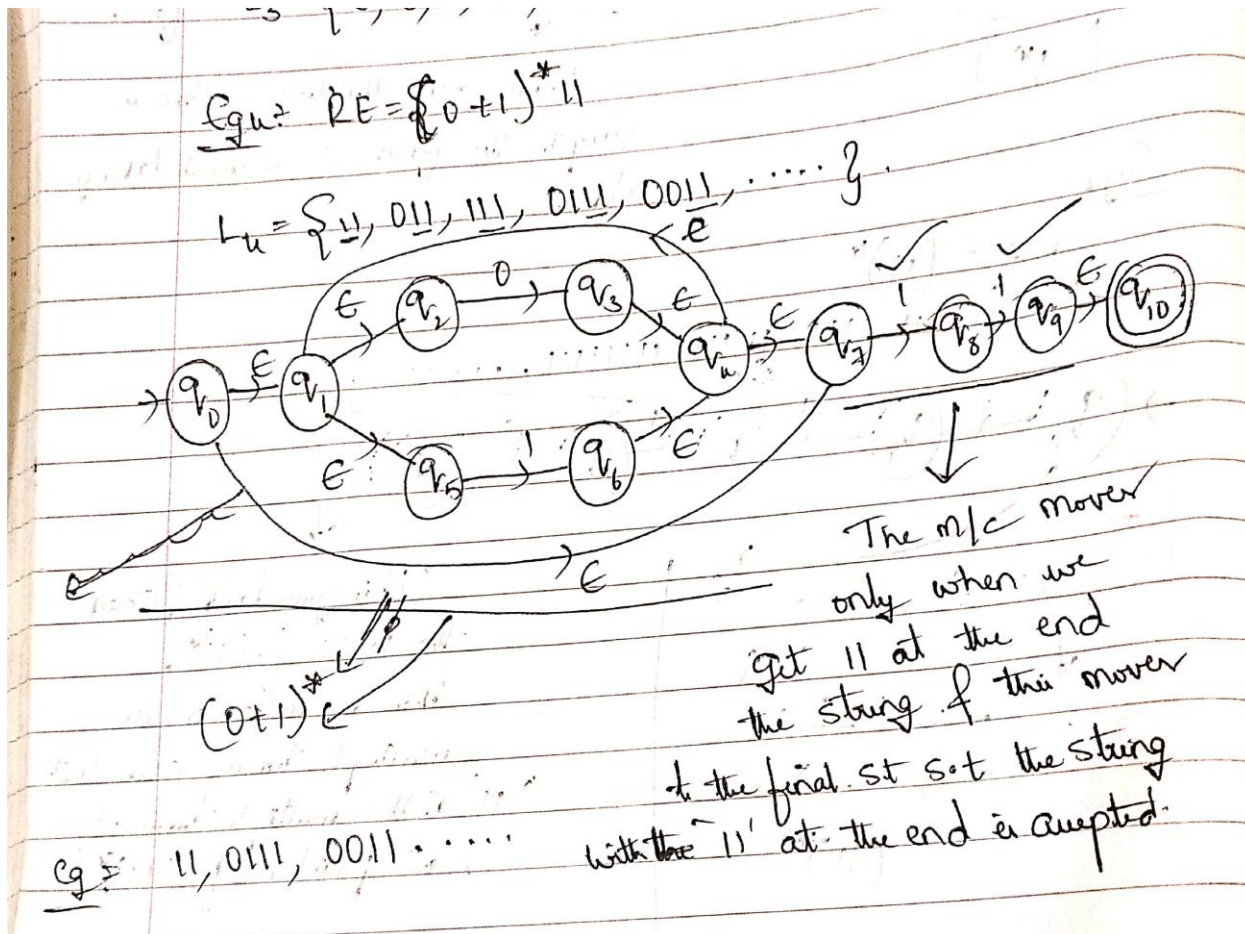 Eg4: RE = {0+1)* 11
L4 = {11, 011, 111, 0111, 0011, ..... }.
e
0
1 1
ϵ q2 q3 ϵ ϵ ϵ q10
q0 ϵ q1 q4 q7 q8 q9
ϵ q5 1 q6 ϵ
ϵ
(0+1)*
The m/c moves
only when we
get 11 at the end
the string & this moves
to the final st s.t the string
with the '11' at the end is accepted.
eg: 11, 0111, 0011 .....